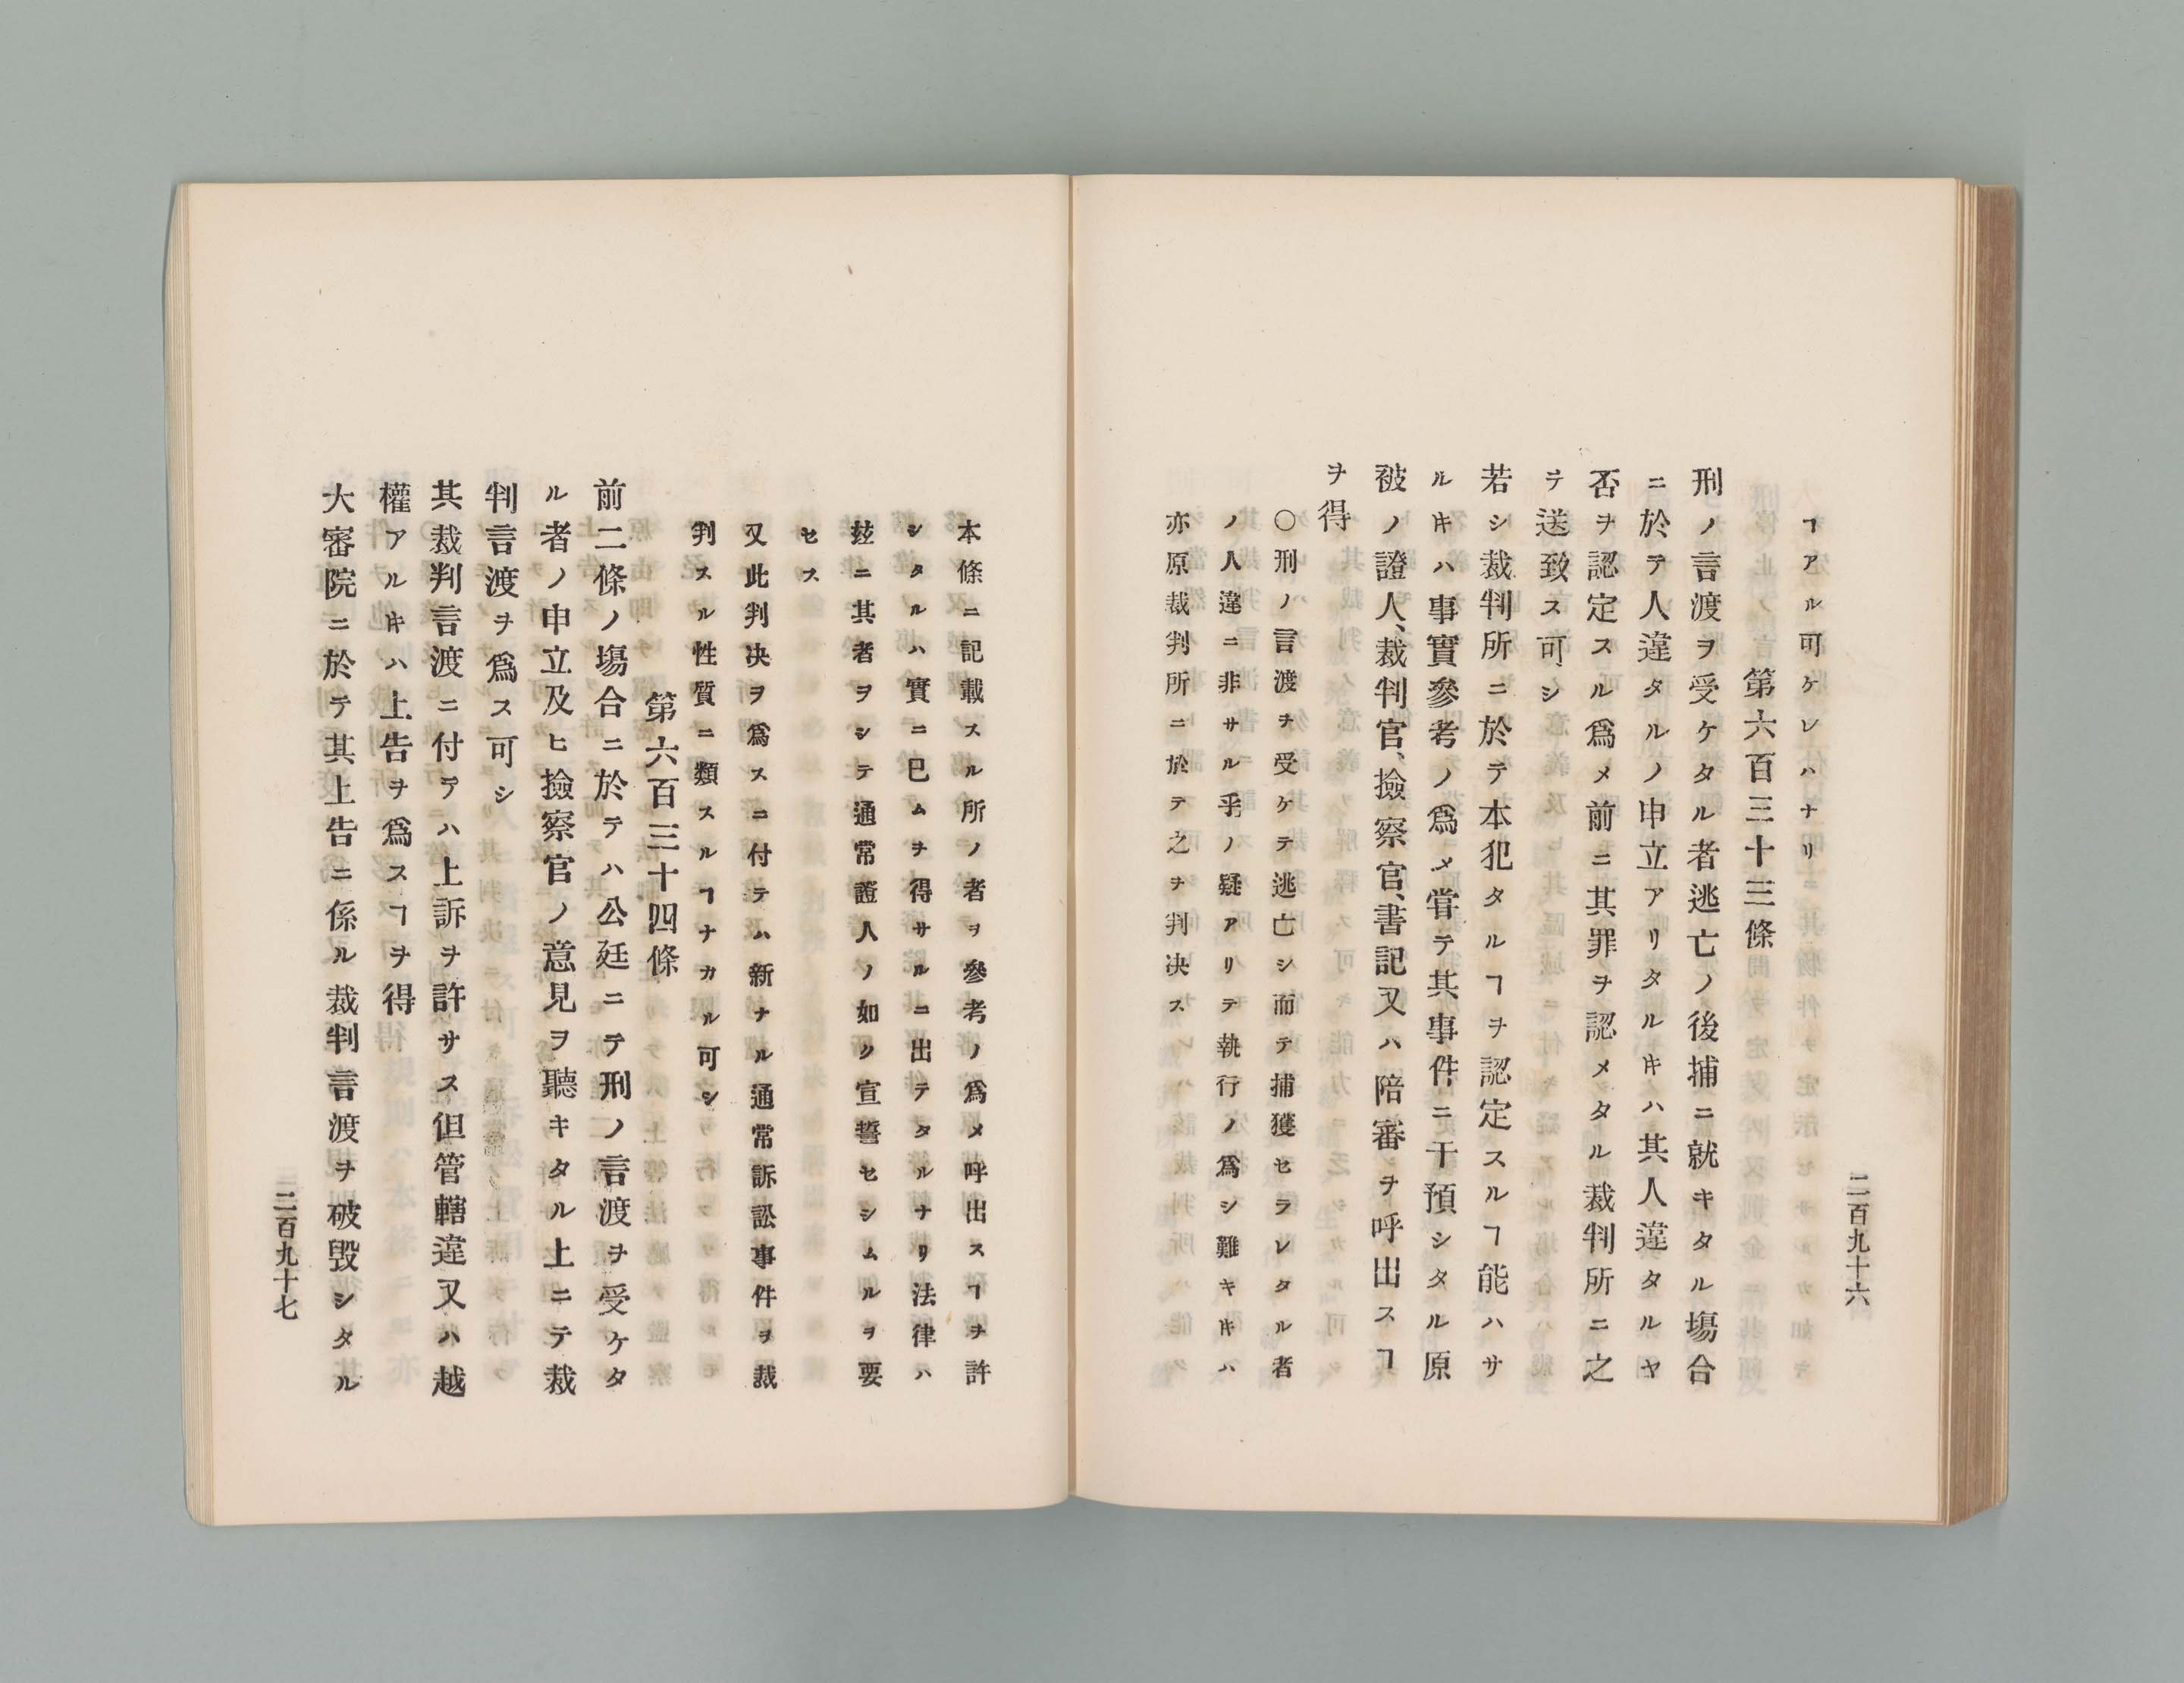 ヿアル可ケレハナリ
第六百三十三條
刑ノ言渡ヲ受ケタル者逃亡ノ後捕ニ就キタル塲合
ニ於テ人違タルノ申立アリタルキハ其人違タルヤ
否ヲ認定スル爲メ前ニ其罪ヲ認メタル裁判所ニ之
テ送致ス可シ
若シ裁判所ニ於テ本犯タルヿヲ認定スルヿ能ハサ
ルキハ事實參考ノ爲メ甞テ其事件ニ干預シタル原
被ノ證人、裁判官、撿察官、書記又ハ陪審ヲ呼出スヿ
ヲ得
〇刑ノ言渡ヲ受ケテ逃亡シ而テ捕獲セラレタル者
ノ人違ニ非サル乎ノ疑アリテ執行ノ爲シ難キキハ
亦原裁判所ニ於テ之ヲ判决ス
二百九十六
本條ニ記載スル所ノ者ヲ參考ノ爲メ呼出スヿヲ許
シタルハ實ニ已ムヲ得サルニ出テタルナリ法律ハ
玆ニ其者ヲシテ通常證人ノ如ク宣誓セシムルヲ要
セス
又此判决ヲ爲スニ付テハ新ナル通常訴訟事件ヲ裁
判スル性質ニ類スルヿナカル可シ
第六百三十四條
前二條ノ塲合ニ於テハ公廷ニテ刑ノ言渡ヲ受ケタ
ル者ノ申立及ヒ撿察官ノ意見ヲ聽キタル上ニテ裁
判言渡ヲ爲ス可シ
其裁判言渡ニ付テハ上訴ヲ許サス但管轄違又ハ越
權アルキハ上告ヲ爲スヿヲ得
大審院ニ於テ其上告ニ係ル裁判言渡ヲ破毀シタル
二百九十七